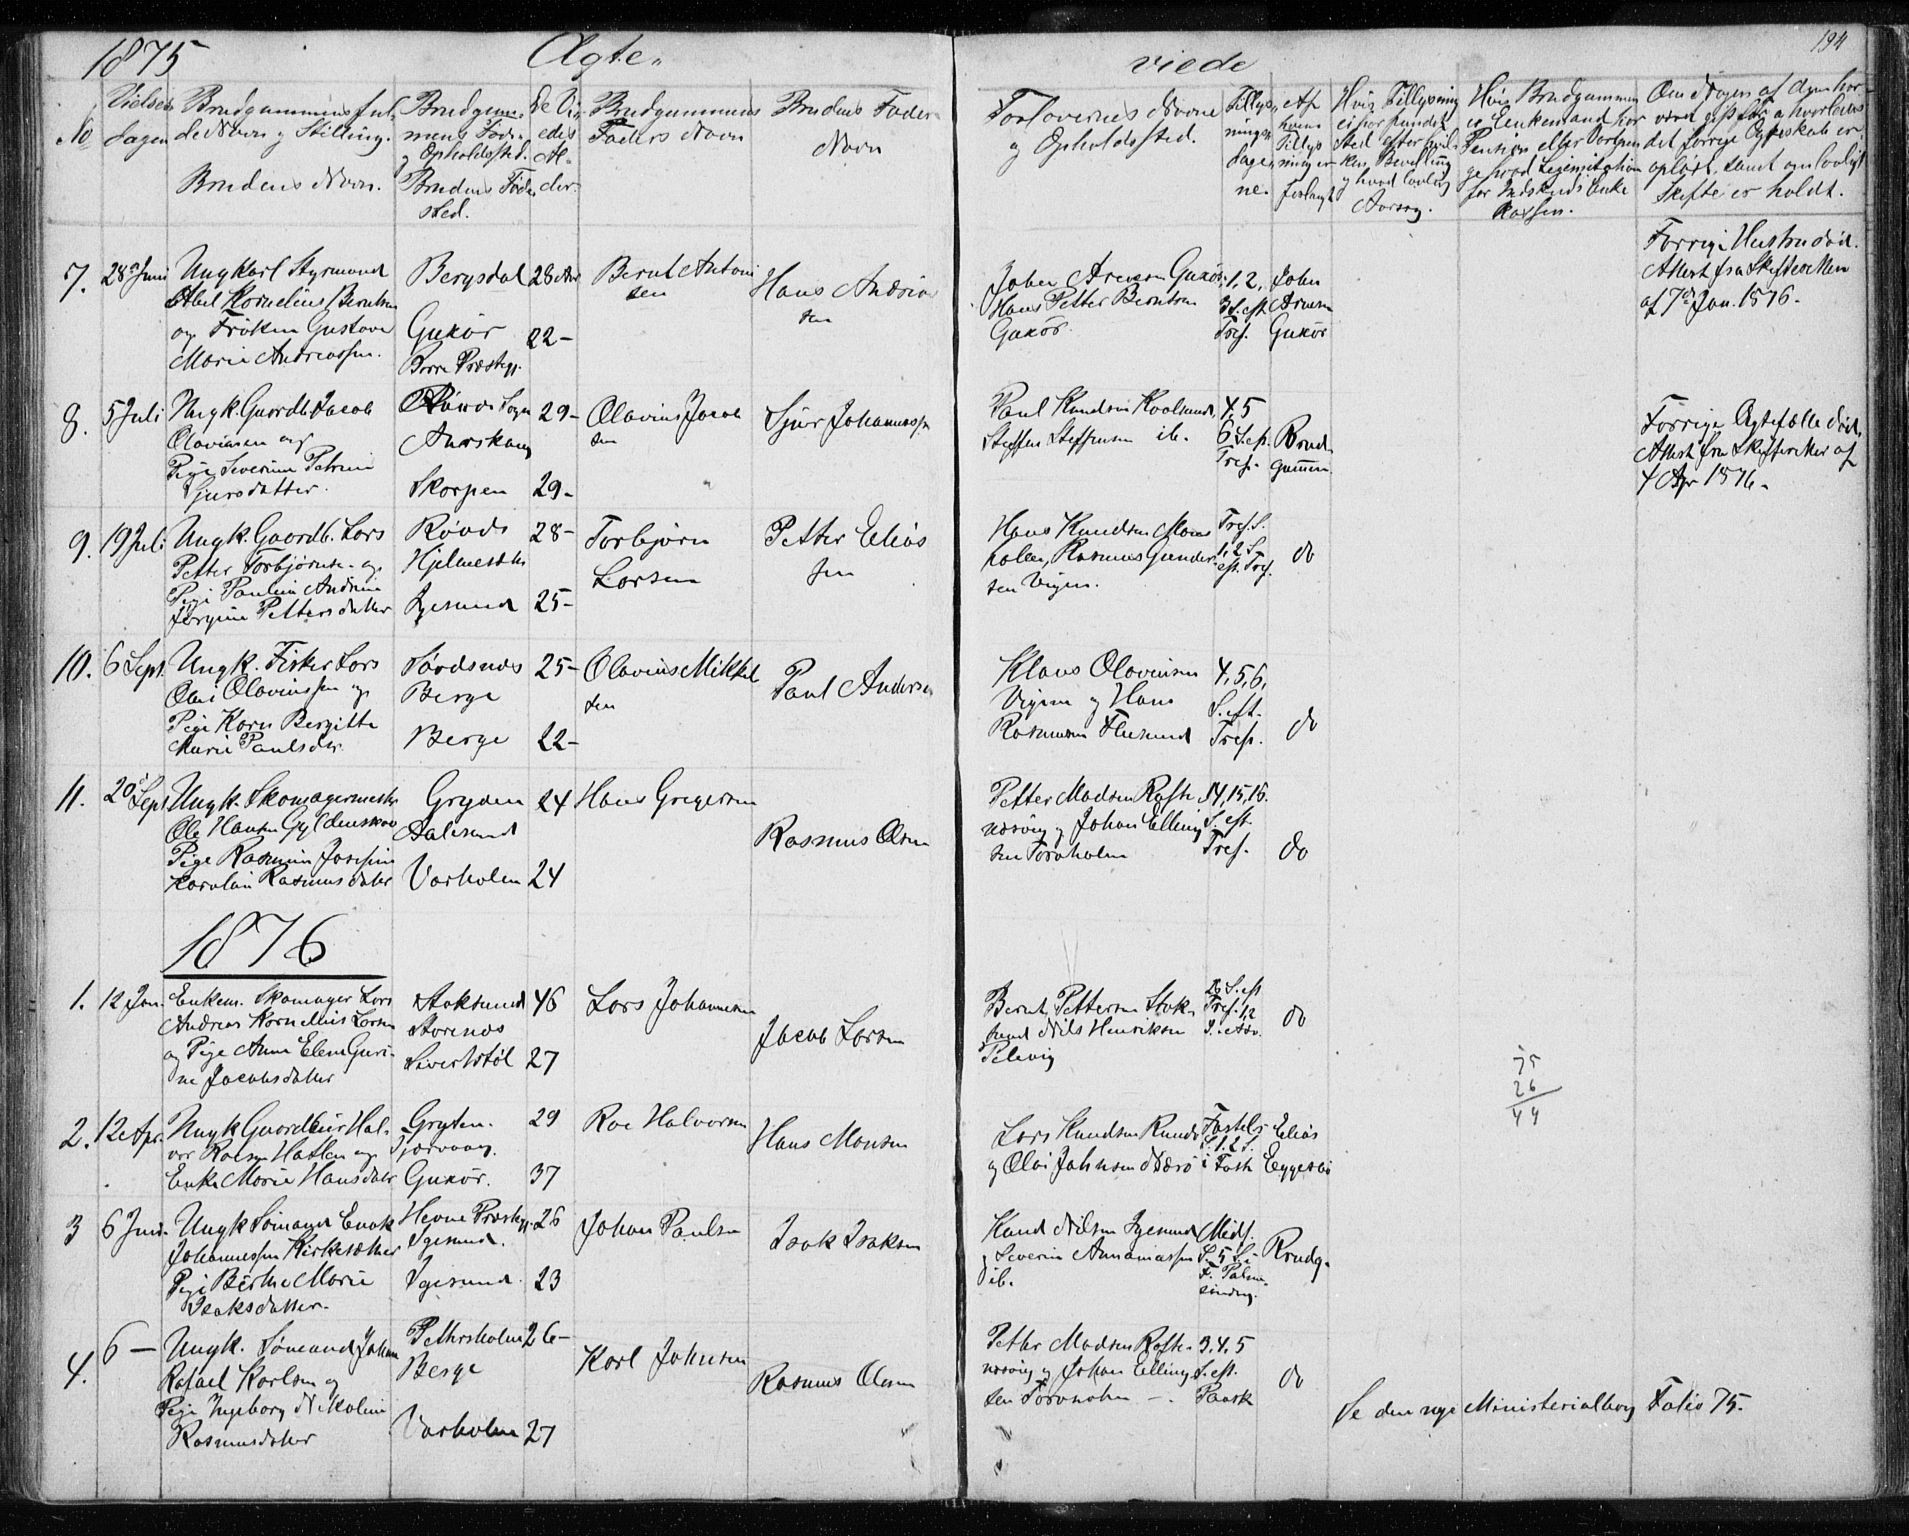 1875
Ægte-
viede
194
No
Vielses
dagen
Brudgummens ful-
de Navn og Stilling.
Brudens Navn.
Brudgum-
mens Føde-
og Opholdssted.
Brudens Føde-
sted.
De Vi-
edes
Al-
der.
Brudgummens
Faders Navn
Brudens Faders
Navn
Forlovernes Navne
og Opholdssted.
Tillys-
ningsda-
gene.
Af
hvem
Tillys
ning er
forlangt
Hvis Tillysning
ei har fundet
Sted, efter hvil-
ken Bevilling
og hvad lovlig
Aarsag.
Hvis Brudgummen
er Enkemand
Pension eller
for Indskuds Enke
Kassen.
Om Nogen af dem har
været gift før, hvorledes
det forrige Ægteskab er
opløst, samt om lovligt
Skifte er holdt.
7. 28 Juni
Ungkarl Styrmand
Abel Kornelius Berntsen
og Frøken Gustava
Marie Andreassen.
Bergsdal
Gukør
Borre Præstegj.
28 Aar
22-
Bernt Antoni
sen
Hans Andrias
sen
Johan Arnesen Gukør
Hans Petter Berntsen
Gukør.
1, 2,
3 S. eft
Tref.
John
Arnesen
Gukør
Forrige Hustru død.
Attest fra Skifteretten
af 7de Jan. 1876.
8. 5 Juli
Ungk. Gaardb. Jacob
Olaviusen og
Pige Severine Petrine
Sjursdatter.
Røvde Sogn
Aurskoug
Skorpen
29-
29-
Olavius Jacob
sen
Sjur Johanness.
Paul Knudsen Koalsund,
Steffen Steffensen ib.
4, 5
6 S. ef.
Tref.
Brud-
gummen
Forrige Ægtefælle død.
Attest fra Skifteretten af
4 Apr 1876.
9. 19 Juli
Ungk. Gaardb. Lars
Petter Torbjørnsen og
Pige Pauline Andrine
Jørgine Pettersdatter
Røvde
Igesund
28-
25-
Torbjørn
Larsen
Petter Elias
sen
Hans Knudsen Mons
holen, Rasmus Gunder-
sen Vigen.
Tref. S.
1, 2 S.
eft. Tref.
do
10. 6 Sept.
Ungk. Fisker Lars
Olai Olaviussen og
Pige Karen Bergitta
Marie Paulsdtr.
Sørdsnes
Berge
Berge
25-
22-
Olavius Mikkel
sen
Paul Andersen
Klaus Olaviusen
Vigen og Hans
Rasmussen Flusund
4, 5, 6,
S. eft.
Tref.
do
11. 20 Sept.
Ungk. Skomagermester
Ole Hansen Gyldenskov
Pige Rasmine Josefine
Karoline Rasmusdatter
Gryden
Aalesund
Varholm
24
24
Hans Gregersen
Rasmus Olsen
Petter Madsen Røste
nesvig og Johan Elling
sen Torvholm
14, 15, 16.
S. eft.
Tref.
do
1876
1. 12 Jan.
Enkem. Skomager Lars
Andreas Kornelius Larsen
og Pige Anne Elene Guri-
ne Jacobsdatter
Stoksund
Storenes
Sivertstøl
46
27
Lars Johannesen
Jacob Larsen
Bernt Pettersen Stok-
sund Nils Henriksen
Pilevig
26 S. eft
Tref. 1, 2
S. i Adv.
do
2. 12 Apr.
Ungk Gaardbruger Hal-
vor Roesen Hatlen og
Enke Marie Hansdatter
Gryten.
Gukør.
29
37
Roe Halvorsen
Hans Monsen
Lars Knudsen Runde
og Olai Jahnsen Nerø
Fastels
S. 1. 2 S.
i Fast
Elias
Eggesbø
3 6 Juni.
Ungk Sømand Enok
Johannessen Kirksæther
Pige Berthe Marie
Isaksdatter.
Hevne Præstegj.
Igesund.
Igesund.
26
23
Johan Paulsen
Isak Isaksen
Knud Nilsen Igesund
og Severin Annaniassen
ib.
Midf.
S. 5 S. i
F. Palme
søndag.
Brudg.
4. 6 —
Ungk. Sømand Johan
Rafael Karlsen og
Pige Ingeborg Nikoline
Rasmusdatter
Pethersholm
Berge
Varholm
26-
27
Karl Johnsen
Rasmus Olsen
Petter Madsen Røste-
nesvig og Johan Elling
sen Torvholm —.
3. 4. 5
S. eft.
Paask
do
75
26
44
Se den nye Ministerialbog Folio 75.